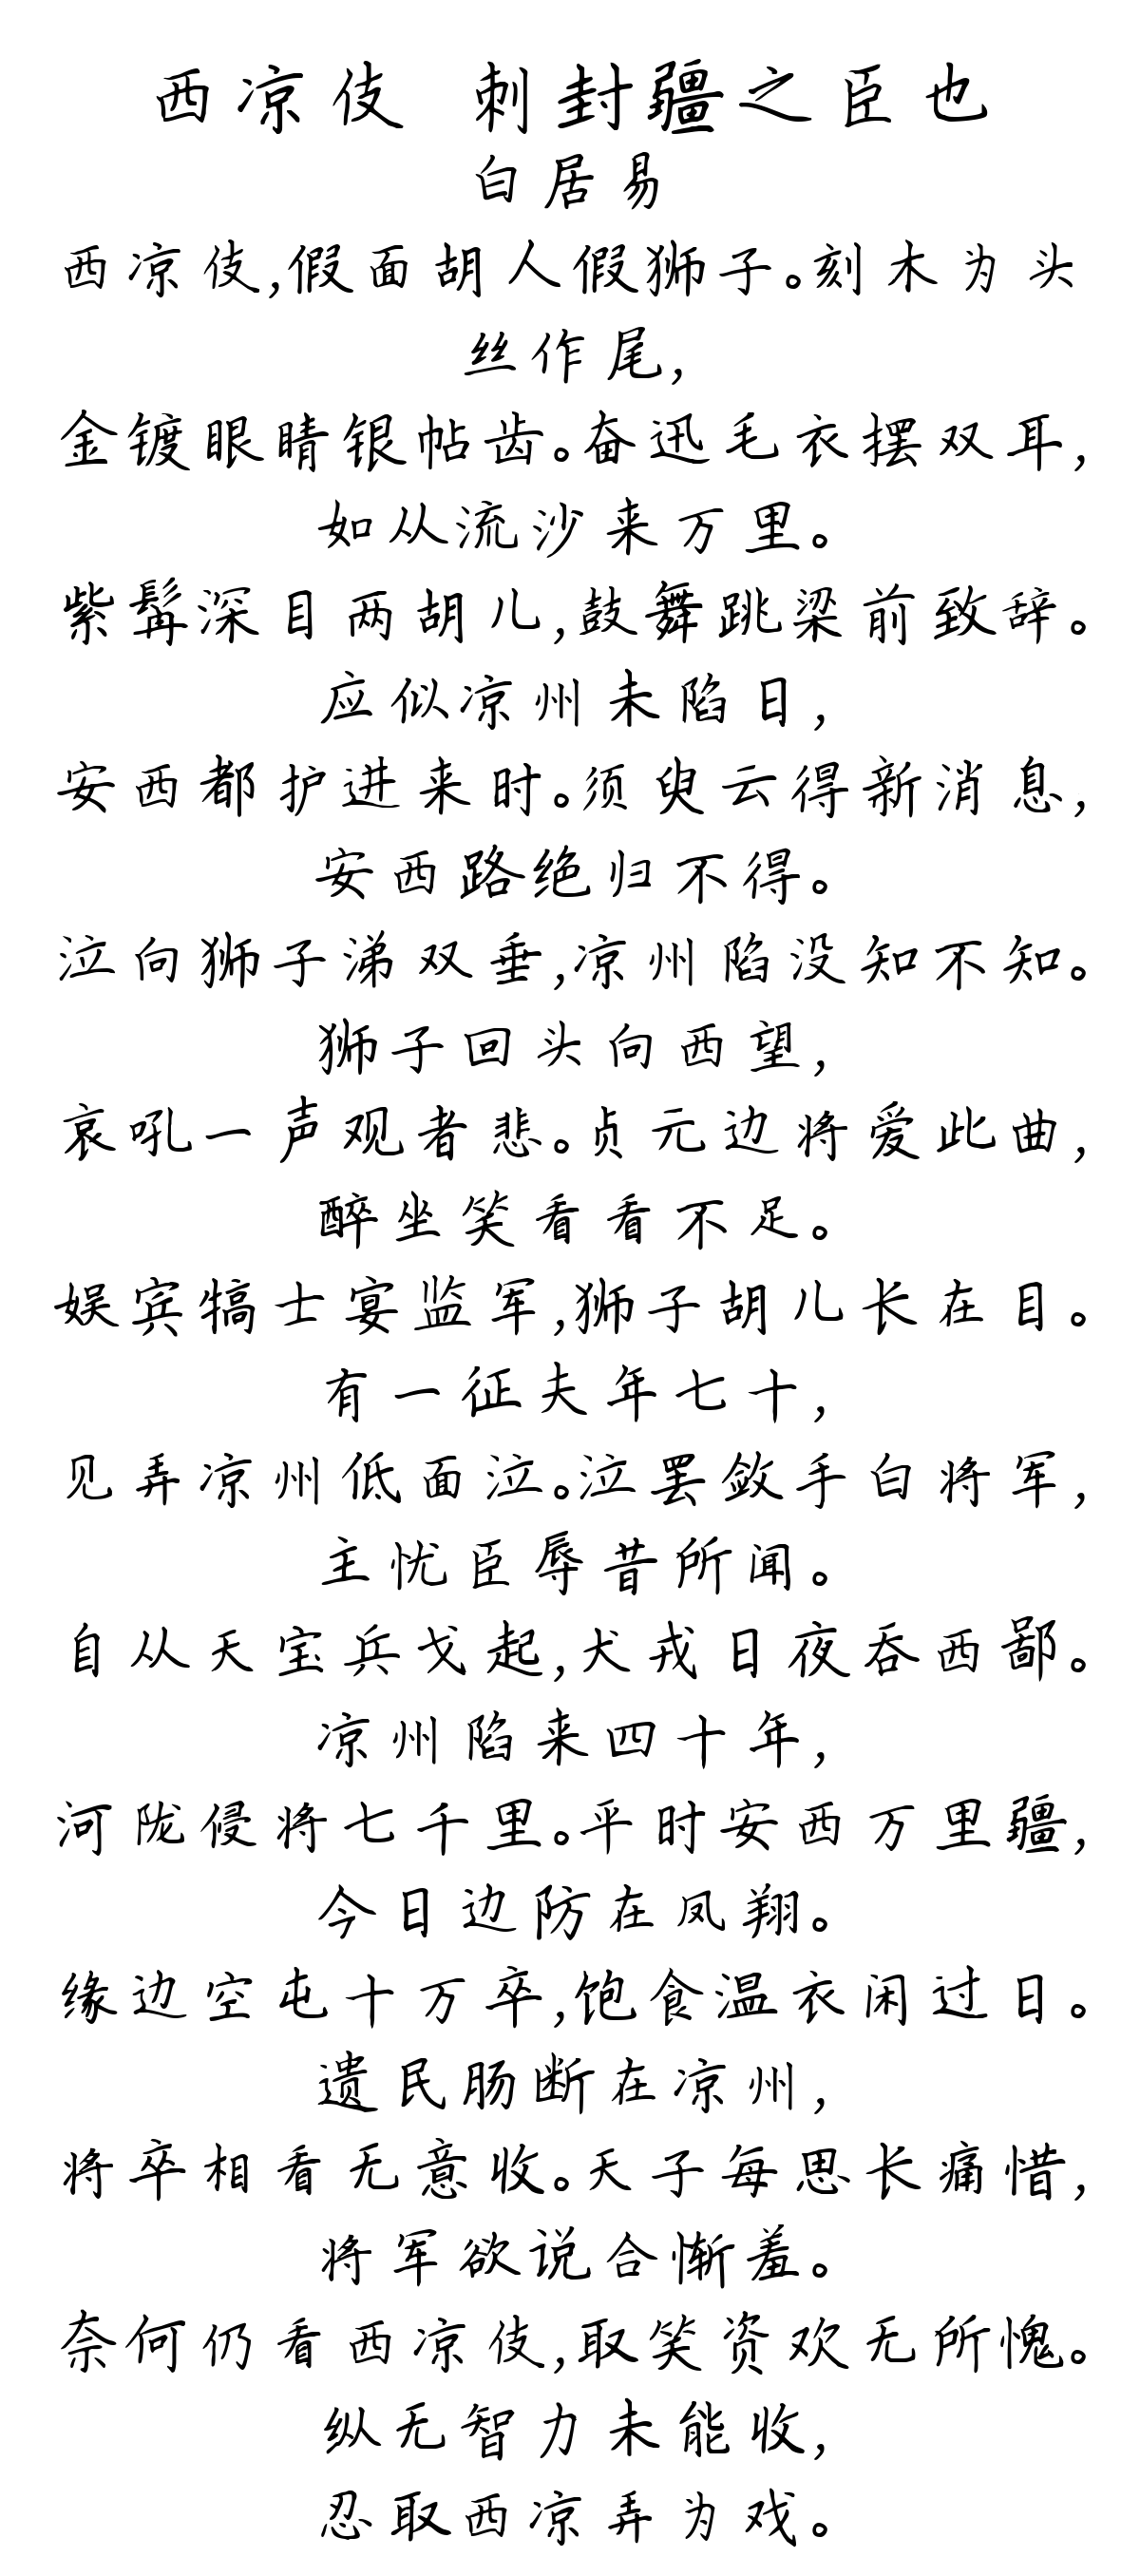 西凉伎 刺封疆之臣也
白居易
西凉伎,假面胡人假狮子。刻木为头
丝作尾,
金镀眼睛银帖齿。奋迅毛衣摆双耳,
如从流沙来万里。
紫髯深目两胡儿,鼓舞跳梁前致辞。
应似凉州未陷日,
安西都护进来时。须臾云得新消息,
安西路绝归不得。
泣向狮子涕双垂,凉州陷没知不知。
狮子回头向西望,
哀吼一声观者悲。贞元边将爱此曲,
醉坐笑看看不足。
娱宾犒士宴监军,狮子胡儿长在目。
有一征夫年七十,
见弄凉州低面泣。泣罢敛手白将军,
主忧臣辱昔所闻。
自从天宝兵戈起,犬戎日夜吞西鄙。
凉州陷来四十年,
河陇侵将七千里。平时安西万里疆,
今日边防在凤翔。
缘边空屯十万卒,饱食温衣闲过日。
遗民肠断在凉州,
将卒相看无意收。天子每思长痛惜,
将军欲说合惭羞。
奈何仍看西凉伎,取笑资欢无所愧。
纵无智力未能收,
忍取西凉弄为戏。